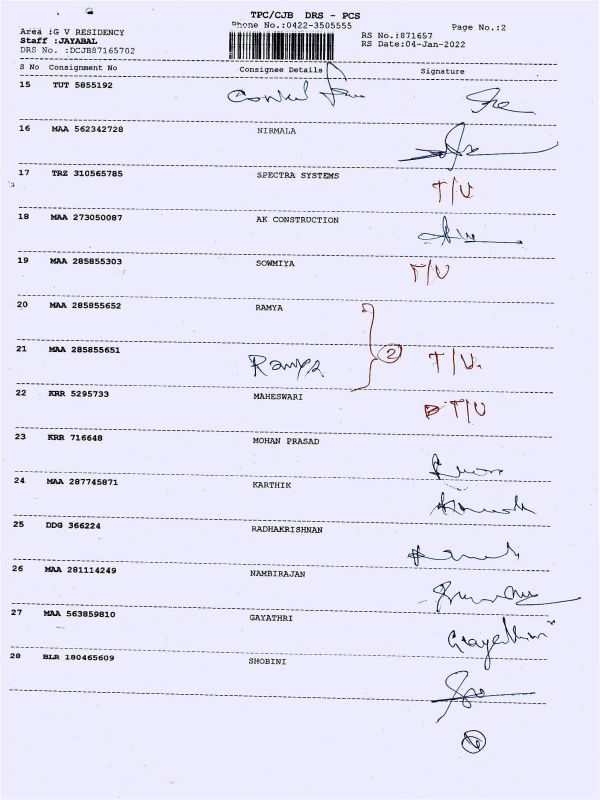 TPC/CJB DRS - PCS
Phone No.:0422-3505555
Page No.:2
Area :G V RESIDENCY
Staff :JAYABAL
DRS No. :DCJB87165702
RS No.:871657
RS Date:04-Jan-2022
S No Consignment No Consignee Details Signature
15 TUT 5855192
16 MAA 562342728 NIRMALA
17 TRZ 310565785 SPECTRA SYSTEMS T/U
18 MAA 273050087 AK CONSTRUCTION
19 MAA 285855303 SOWMIYA T/U
20 MAA 285855652 RAMYA
21 MAA 285855651 Ramya 2 T/U.
22 KRR 5295733 MAHESWARI T/U
23 KRR 716648 MOHAN PRASAD
24 MAA 287745871 KARTHIK
25 DDG 366224 RADHAKRISHNAN
26 MAA 281114249 NAMBIRAJAN
27 MAA 563859810 GAYATHRI Gayathri
28 BLR 180465609 SHOBINI